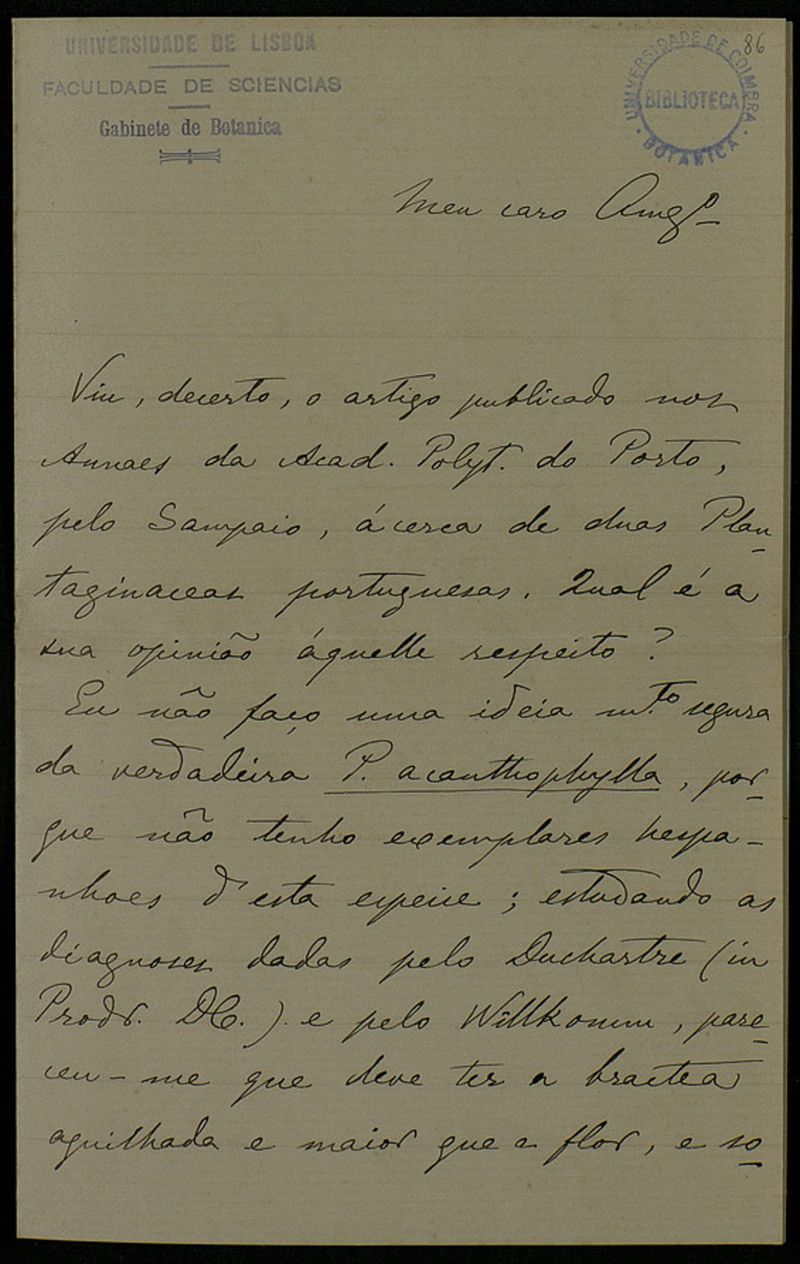 UNIVERSIDADE DE LISBOA
FACULDADE DE SCIENCIAS
Gabinete de Botanica
86
UNIVERSIDADE DE COIMBRA
BIBLIOTECA
BOTANICA
Meu caro Amgº
Viu, decerto, o artigo publicado nos
Annaes da Acad. Polyt. do Porto,
pelo Sampaio, ácerca de duas Plan-
taginaceas portuguesas. Qual é a
sua opinião áquelle respeito?
Eu não faço uma ideia m.to segura
da verdadeira P. acanthophylla, por-
que não tenho exemplares hespa-
nhoes d'esta especie; estudando as
diagnoses dadas pelo Duchartre (in
Prodr. DC.). e pelo Willkomm, pare-
ceu-me que deve ter a bractea
aquilhada e maior que a flor, e so-